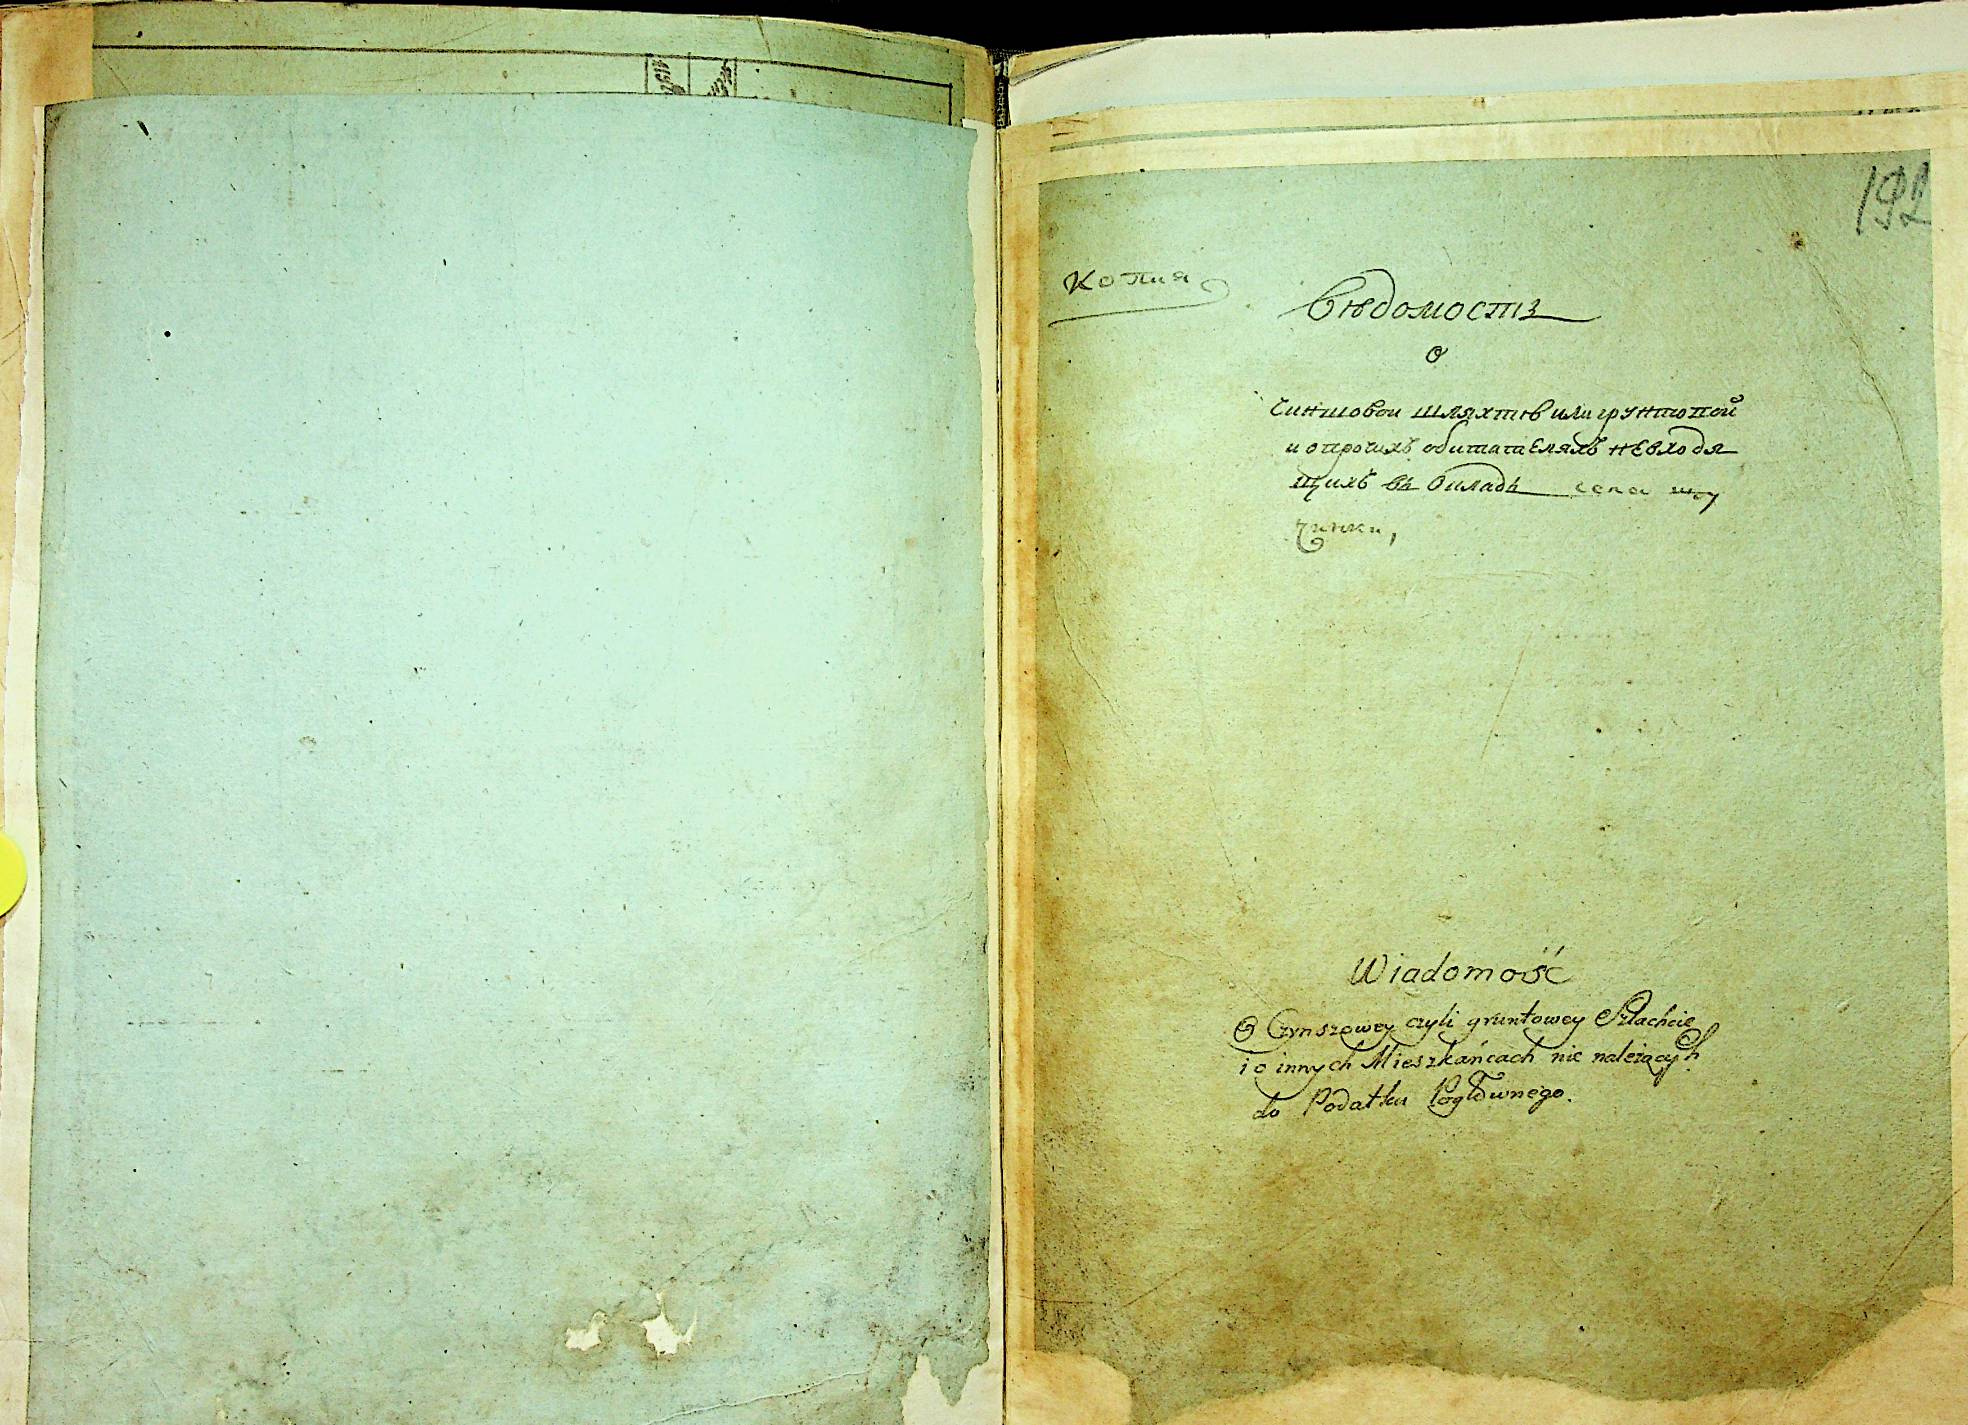 192
Копия
Вѣдомость
о
Чиншовои шляхтѣ или грунтовой
и о прочихъ обитателяхъ невходя
щихъ въ Окладъ села
Wiadomość
O Czynszowey czyli gruntowey Szlachcie
i o innych Mieszkańcach nie należących
do Podatku Pogłównego.